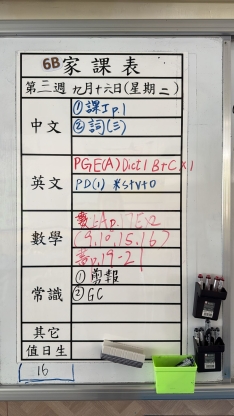 6B家課表
第三週 九月十六日(星期二)
中文
①課工p.1
②詞(三)
英文
PGE(A) Dict1 B+C×1
PD(1) 米S+V+O
數學
(9.10.15.16)
書p.19-21
常識
①剪報
②GC
其它
值日生
16